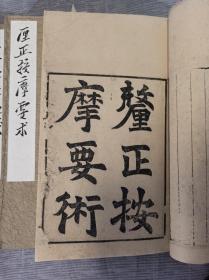 厘正按摩要术
釐正按
摩要術